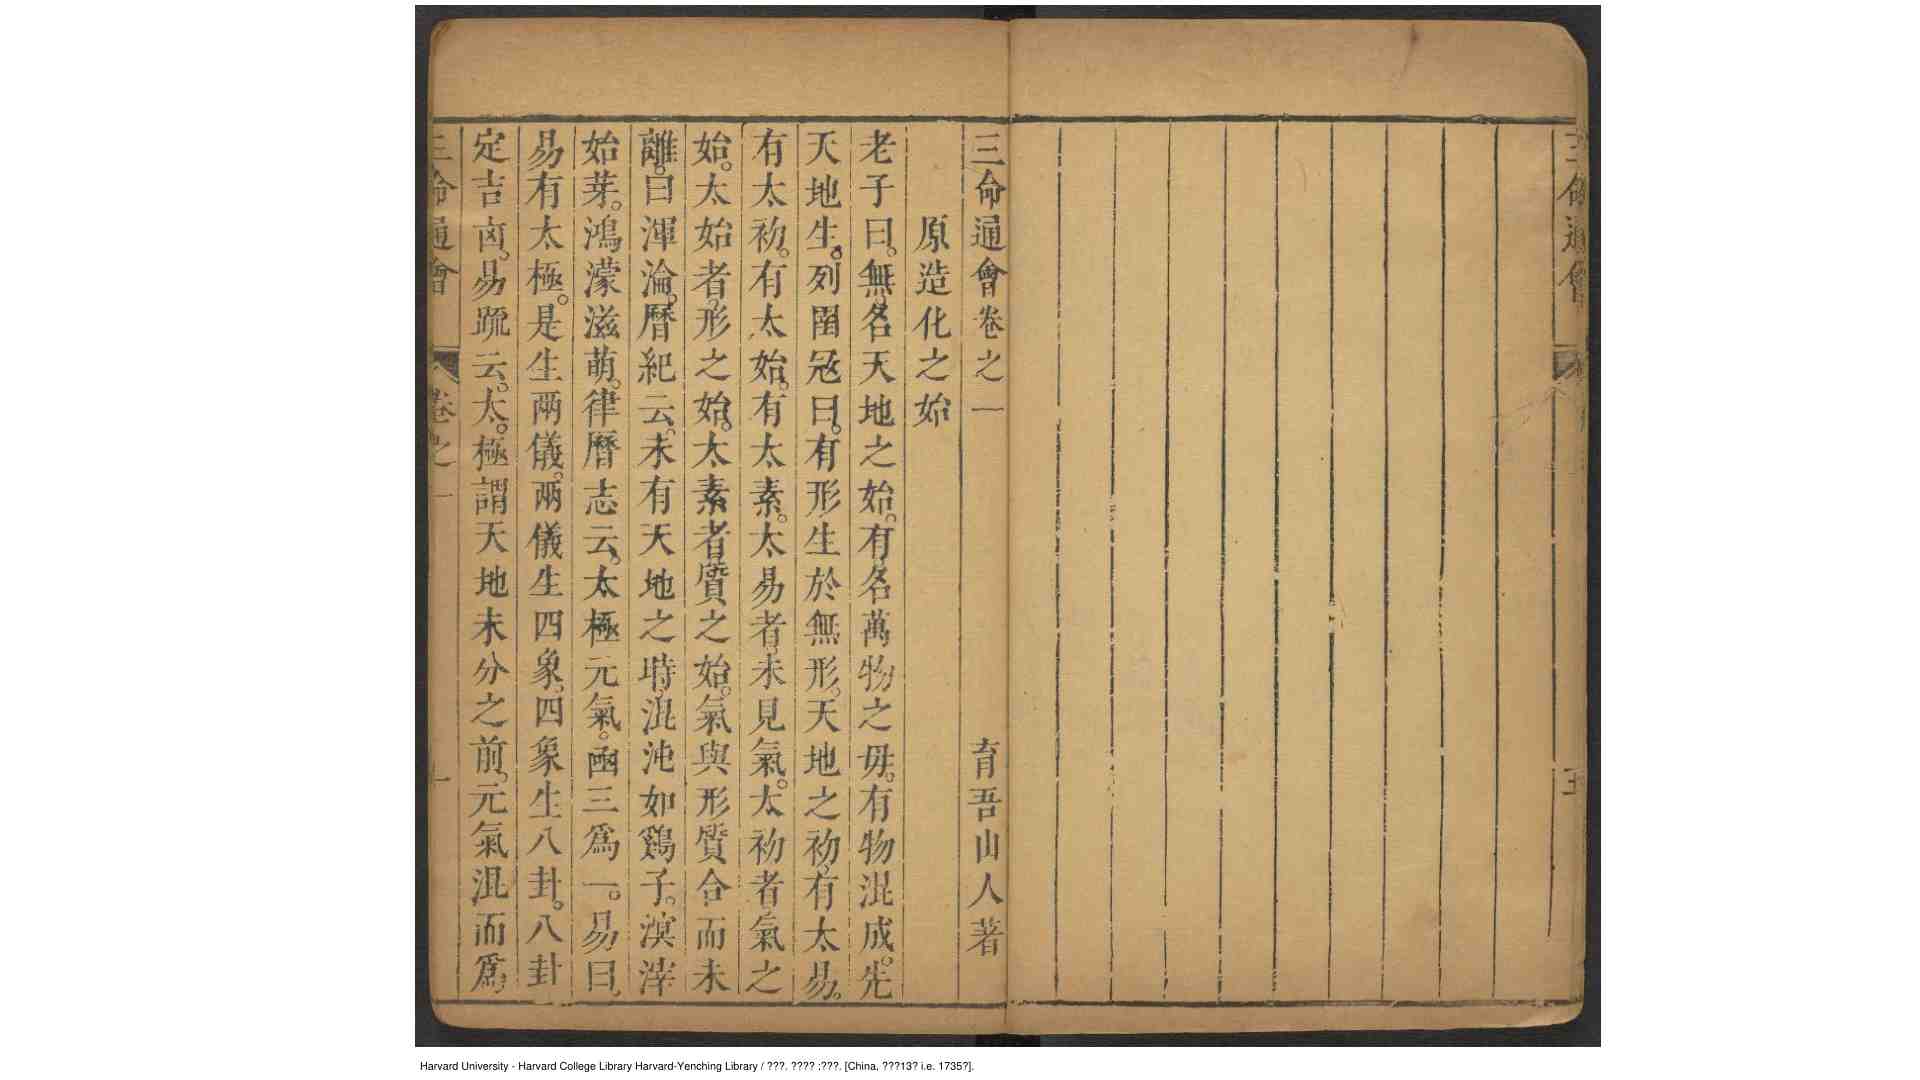 三命通會
三命通會卷之一 育吾山人著
原造化之始
老子曰。無名天地之始。有名萬物之母。有物混成。先
天地生。列圄冦曰。有形生於無形。天地之初。有太易。
有太初。有太始。有太素。太易者。未見氣。太初者。氣之
始。太始者。形之始。太素者。質之始。氣與形質合而未
離。曰渾淪。曆紀云。未有天地之時。混沌如鷄子。溟涬
始芽。鴻濛滋萌。律曆志云。太極元氣。函三爲一。易曰。
易有太極。是生兩儀。兩儀生四象。四象生八卦。八卦
定吉凶。易疏云。太。極謂天地未分之前。元氣混而爲
三命通會 卷之一 一
Harvard University - Harvard College Library Harvard-Yenching Library / ???. ???? :???. [China, ???13? i.e. 1735?].